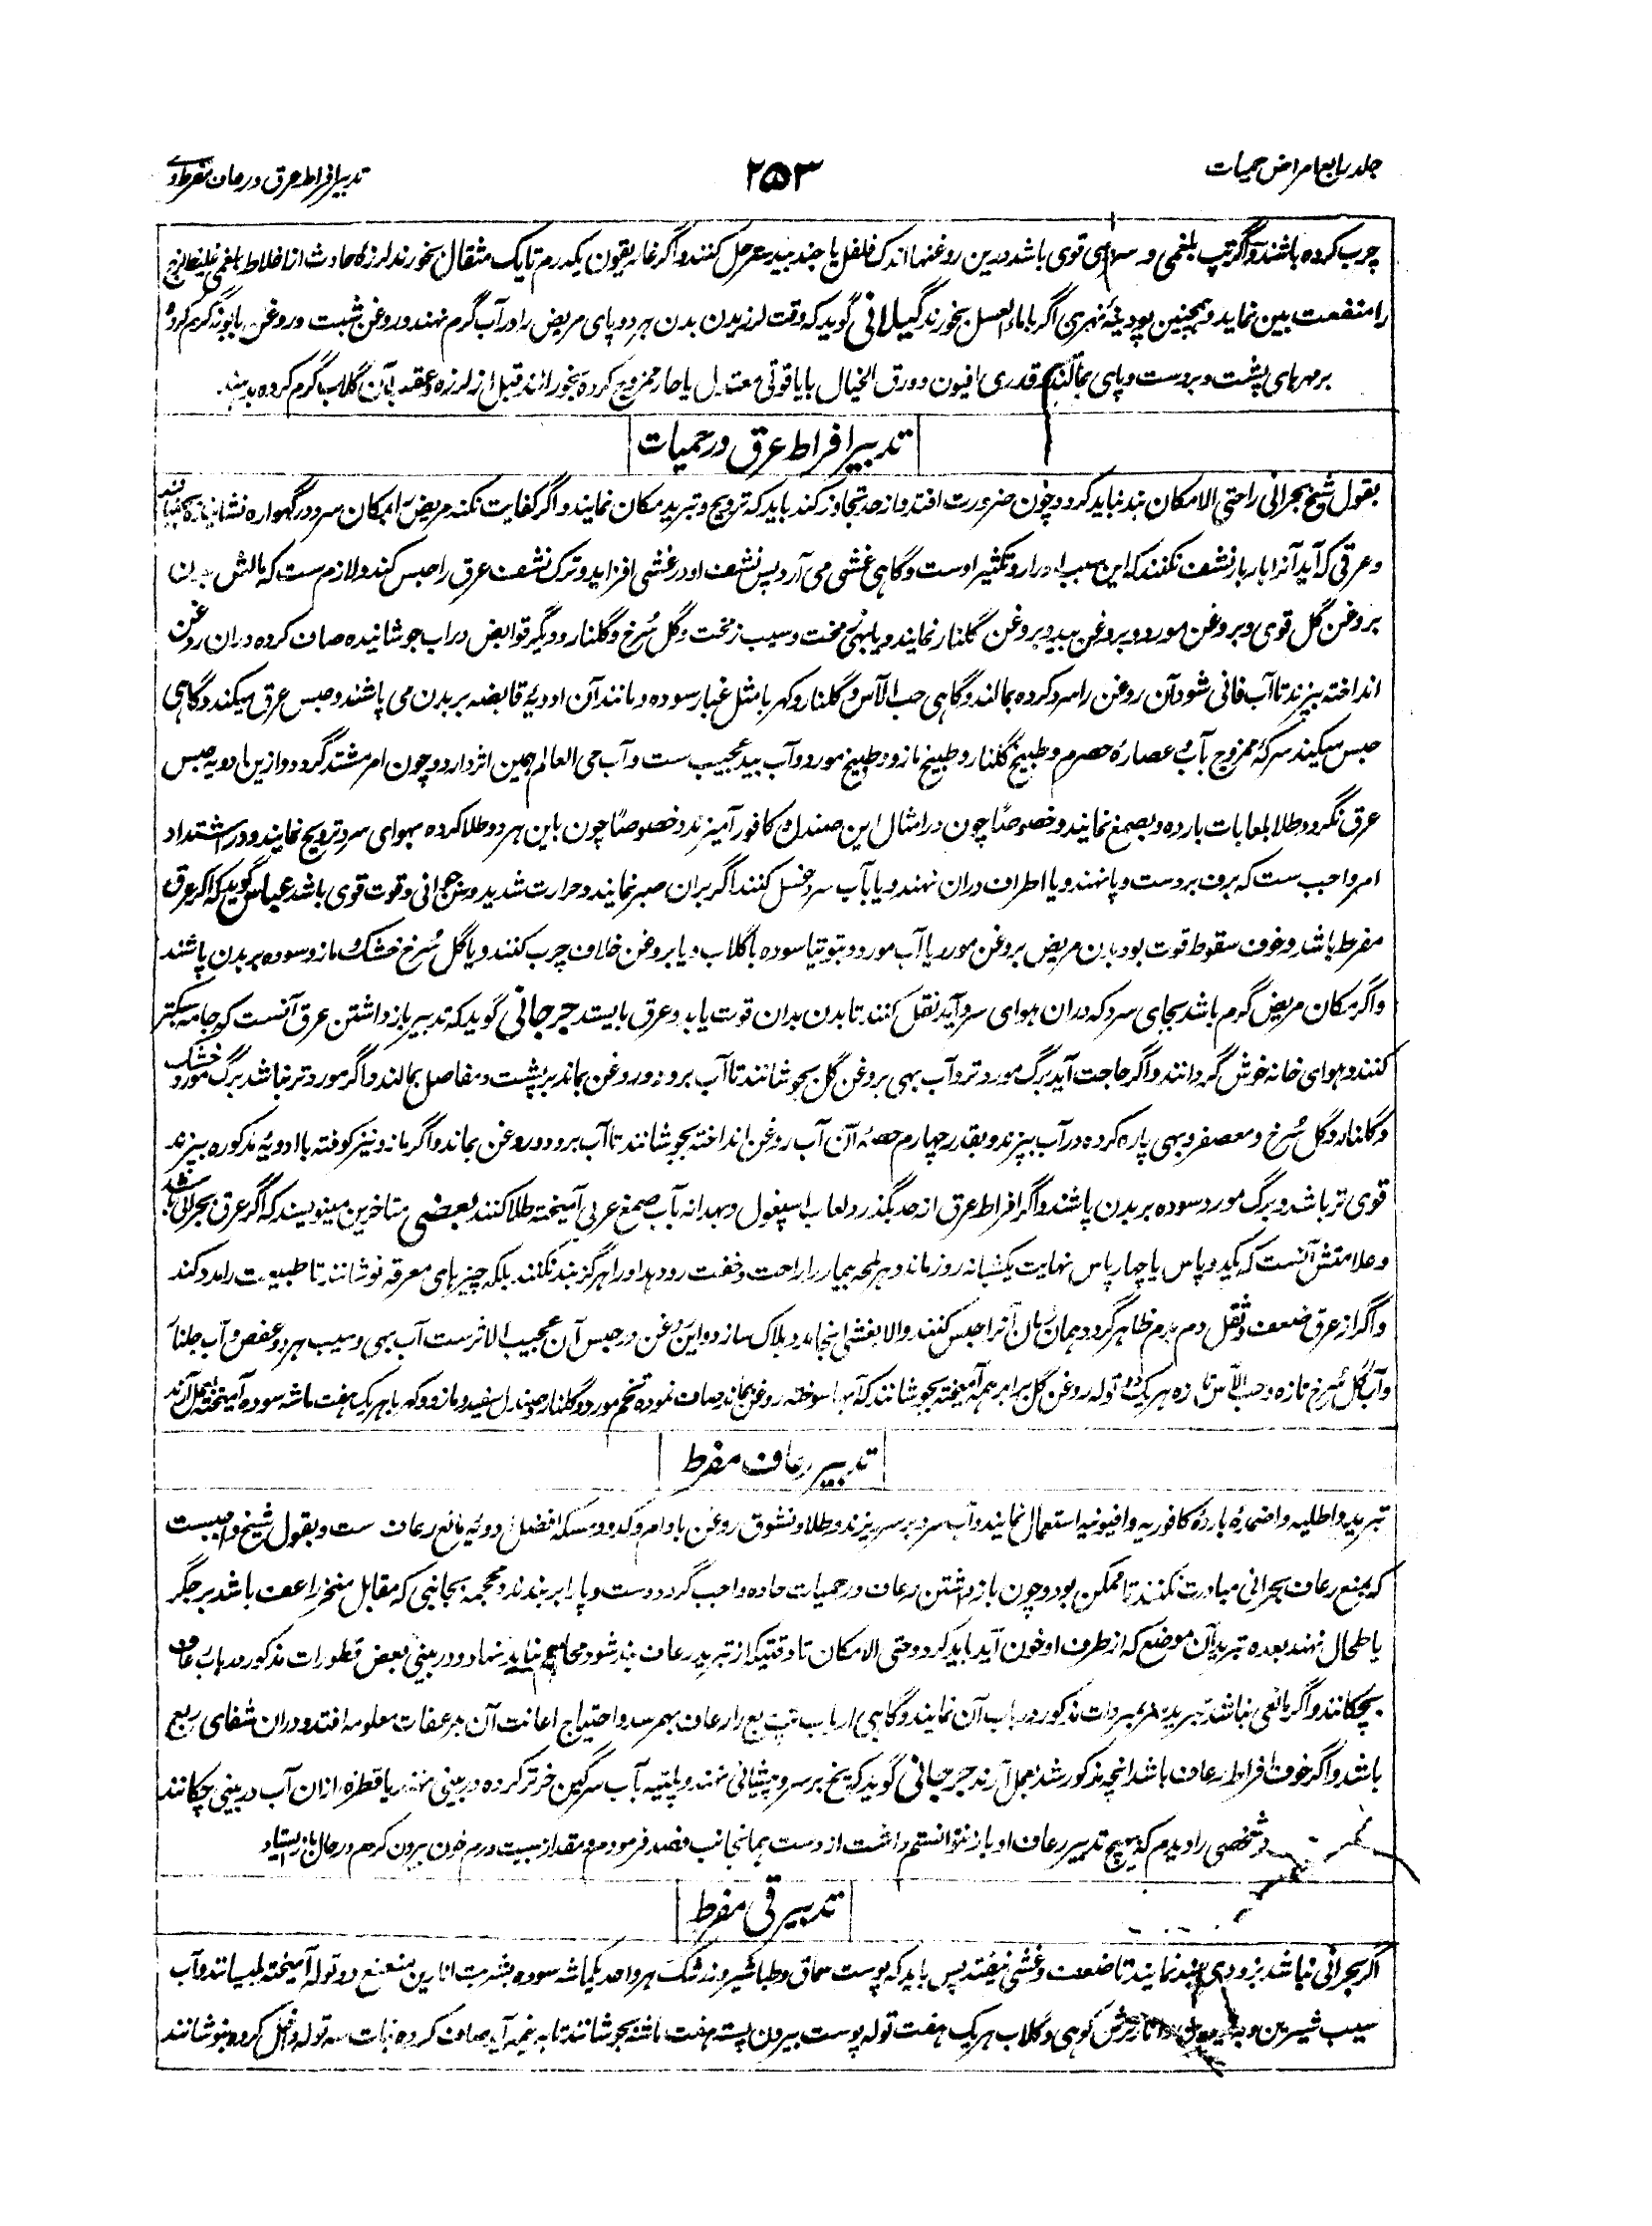 جلد رابع امراض حمیات
۲۵۳
تدبیر افراط عرق و رعاف مفرط و
چرب کرده باشند و اگر تپ بلغمی و سردی قوی باشد درین روغنها اندک فلفل یا جندبیدستر حل کنند و اگر غاریقون یکدرم تا یک مثقال بخورند لرزهٔ حادث از اخلاط بلغمی غلیظ لزج
را منفعت بین نماید و همچنین پودینهٔ نهری اگر با ماءالعسل بخورند گیلانی گوید که وقت لرزیدن بدن هر دو پای مریض را در آب گرم نهند و روغن شبت و روغن بابونه گرم کرده
بر مهرهای پشت و بر دست و پای بمالند و قدری افیون و ورق الخیال با یاقوتی معتدل یا حار ممزوج کرده بخورانند قبل از لرزه و عقب آن گلاب گرم کرده بدهند
تدبیر افراط عرق در حمیات
بقول شیخ بحرانی را حتی الامکان بند نباید کرد و چون ضرورت افتد و از حد تجاوز کند باید که ترویح و تبرید مکان نمایند و اگر کفایت نکند مریض را بمکان سرد در گهواره نشانیده بجنبانند
و عرقی که آید آنرا بار بار نشف نکنند که این سبب ادرار و تکثیر اوست و گاهی غشی می آرد پس نشف او در غشی افزاید و ترک نشف عرق را حبس کند و لازم ست که مالش بدن
بروغن گل قوی و بروغن مورد و بروغن بید و بروغن گلنار نمایند و یا بهی زمخت و سیب زمخت و گل سُرخ و گلنار و دیگر قوابض در آب جوشانیده صاف کرده دران روغن
انداخته بپزند تا آب فانی شود آن روغن را سرد کرده بمالند و گاهی حب الآس و گلنار و کهربا مثل غبار سوده و مانند آن ادویهٔ قابضه بر بدن می پاشند و حبس عرق میکند و گاهی
حبس میکند سرکهٔ ممزوج بآب و عصارهٔ حصرم و طبیخ گلنار و طبیخ مازو و طبیخ مورد و آب بید عجیب ست و آب حی العالم همین اثر دارد و چون امر مشتد گردد و ازین ادویه حبس
عرق نگردد طلا بلعابات بارده و بصمغ نمایند و خصوصاً چون در امثال این صندل و کافور آمیزند و خصوصاً چون باین هر دو طلا کرده بهوای سرد ترویح نمایند و در اشتداد
امر واجب ست که برف بر دست و پا نهند و یا اطراف دران نهند و یا بآب سرد غسل کنند اگر بران صبر نمایند و حرارت شدید و سن جوانی و قوت قوی باشد عباس گوید که اگر عرق
مفرط باشد و خوف سقوط قوت بود بدن مریض بروغن مورد یا آب مورد و بتوتیا سوده با گلاب و یا بروغن خلاف چرب کنند و یا گل سُرخ خشک و مازو سوده بر بدن پاشند
و اگر مکان مریض گرم باشد بجای سرد که دران هوای سرد آید نقل کنند تا بدن بدان قوت یابد و عرق بایستد جرجانی گوید که تدبیر بازداشتن عرق آنست که جامه سبکتر
کنند و هوای خانه خوش گردانند و اگر حاجت آید برگ مورد تر و آب بهی بروغن گل بجوشانند تا آب برود و روغن بماند بر پشت و مفاصل بمالند و اگر مورد تر نباشد برگ مورد خشک
و گلنار و گل سُرخ و معصفر و بهی پاره کرده در آب بپزند و بقدر چهارم حصهٔ آن آب روغن انداخته بجوشانند تا آب برود و روغن بماند و اگر مازو نیز کوفته با ادویهٔ مذکوره بپزند
قوی تر باشد و برگ مورد سوده بر بدن پاشند و اگر افراط عرق از حد بگذرد لعاب اسپغول و بهدانه بآب صمغ عربی آمیخته طلا کنند بعضی متاخرین مینویسند که اگر عرق بحرانی باشد
و علامتش آنست که یکدو پاس یا چهار پاس نهایت یکشبانه روز ماند و هر لمحه بیمار را راحت و خفت رو دهد او را هرگز بند نکنند بلکه چیزهای معرقه نوشانند تا طبیعت را مدد کند
و اگر از عرق ضعف و ثقل دم بدم ظاهر گردد همان زمان آنرا حبس کنند والا بغشی انجامد و هلاک سازد و این روغن در حبس آن عجیب الاثر ست آب بهی و سیب هر دو عفص و آب گلنار
و آب گل سُرخ تازه و حب الآس تازه هر یک دو توله روغن گل برابر همه آمیخته بجوشانند که آبها سوخته روغن بماند صاف نموده تخم مورد و گلنار و صندل سفید و مازو و کهربا هر یک هفت ماشه سوده آمیخته بعمل آرند
تدبیر رعاف مفرط
تبرید و اطلیه و اضمدهٔ باردهٔ کافوریه و افیونیه استعمال نمایند و آب سرد بر سر ریزند و طلا و نشوق روغن بادام و کدو و مسکه افضل ادویهٔ مانع رعاف ست و بقول شیخ واجبست
که بمنع رعاف بحرانی مبادرت نکنند تا ممکن بود و چون بازداشتن رعاف در حمیات حاده واجب گردد دست و پا را بربندند و محجمه بجانبی که مقابل منخر راعف باشد بر جگر
یا طحال نهند بعده تبرید آن موضع که از طرف او خون آید باید کرد و حتی الامکان تا وقتیکه از تبرید رعاف بند شود محاجم نباید نهاد و در بینی بعض قطورات مذکور در باب رعاف
بچکانند و اگر مانعی نباشد تبرید سر بمبردات مذکور در باب آن نمایند و گاهی ارباب تپ ربع را رعاف بهم رسد و احتیاج اعانت آن بمرعفات معلومه افتد و دران شفای ربع
باشد و اگر خوف افراط رعاف باشد انچه مذکور شد بعمل آرند جرجانی گوید که یخ بر سر و پیشانی نهند و پلیته بآب سرگین خر تر کرده در بینی نهند یا قطره ازان آب در بینی چکانند
و شخصی را دیدم که بهیچ تدبیر رعاف او باز نتوانستم داشت از دست همانجانب فصد فرمودم و مقدار بیست درم خون بیرون کردم در حال باز ایستاد
تدبیر قی مفرط
اگر بحرانی نباشد بزودی بند نمایند تا ضعف و غشی نیفتد پس باید که پوست سماق و طباشیر و زرشک هر واحد یکماشه سوده بشربت انارین منعنع دو توله آمیخته بلیسانند و آب
سیب شیرین و ترش کوهی و گلاب هر یک هفت توله پوست بیرون پسته هفت ماشه بجوشانند تا به نیمه آید صاف کرده نبات سه توله داخل کرده بنوشانند